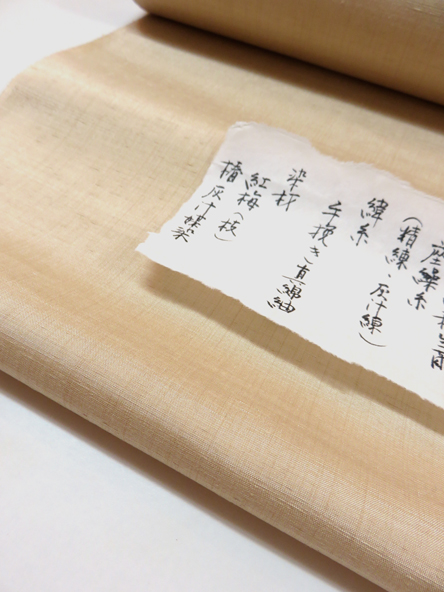 座繰糸
(精練・灰汁練)
緯糸
手挽き真綿紬
染材
紅梅(枝)
椿灰汁媒染